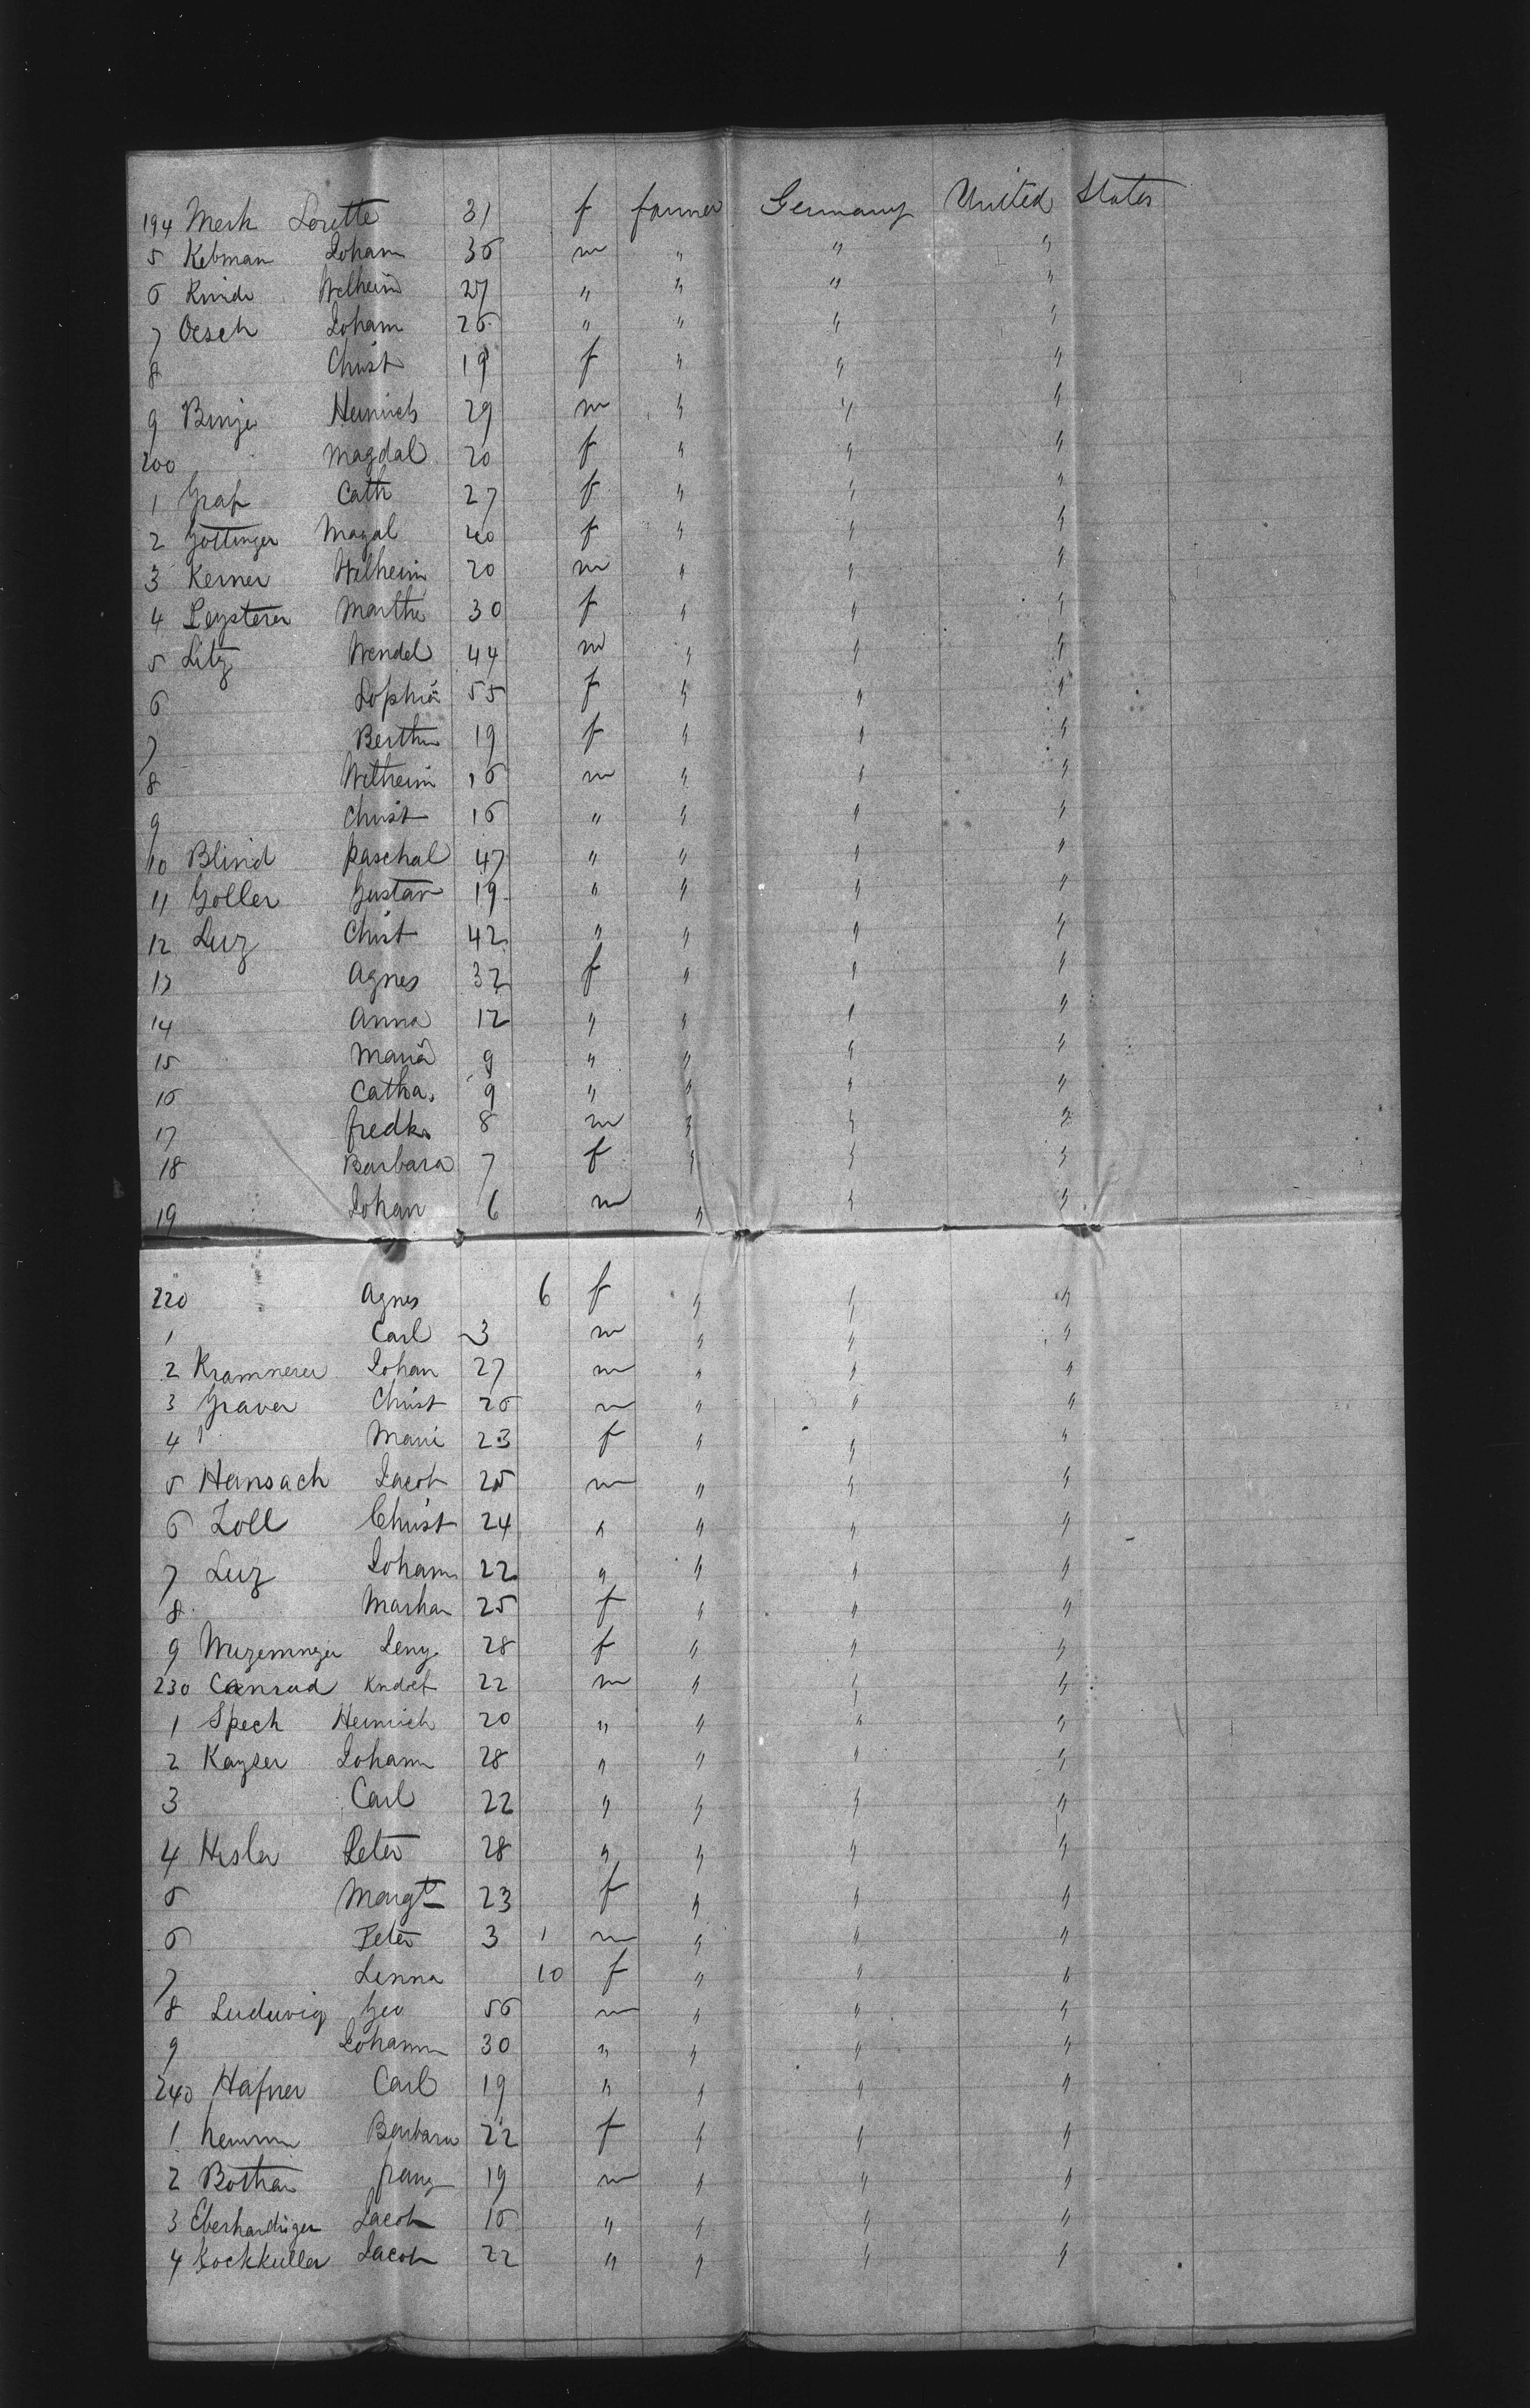 194 Merk Lorette 31 f farmer Germany United States
5 Kebman Johann 36 m " " "
6 Wilheim 27 " " " "
7 Oesch Johann 26 " " " "
8 Christ 19 f " " "
9 Heinrich 29 m " " "
200 Magdal 20 f " " "
1 Graf Cath 27 f " " "
2 Gottinger Magal 40 f " " "
3 Kerner Wilheim 20 m " " "
4 Leysterer Marthe 30 f " " "
5 Litz Wendel 44 m " " "
6 Sophia 55 f " " "
7 Bertha 19 f " " "
8 Wilheim 16 m " " "
9 Christ 16 " " " "
10 Blind Paschal 47 " " " "
11 Goller Gustav 19 " " " "
12 Luz Christ 42 " " " "
13 Agnes 32 f " " "
14 Anna 12 " " " "
15 Maria 9 " " " "
16 Catha. 9 " " " "
17 fredk. 8 m " " "
18 Barbara 7 f " " "
19 Johan 6 m " " "
220 Agnes 6 f " " "
1 Carl 3 m " " "
2 Krammerer Johan 27 m " " "
3 Graver Christ 26 m " " "
4 Marie 23 f " " "
5 Hansach Jacob 25 m " " "
6 Zoll Christ 24 " " " "
7 Luz Johann 22 " " " "
8 Martha 25 f " " "
9 28 f " " "
230 Conrad 22 m " " "
1 Spech Heinrich 20 " " " "
2 Kayser Johann 28 " " " "
3 Carl 22 " " " "
4 Hisler Peter 28 " " " "
5 Margt 23 f " " "
6 Peter 3 1 m " " "
7 Lenna 10 f " " "
8 Luduvig Geo 56 m " " "
9 Johann 30 " " " "
240 Hafner Carl 19 " " " "
1 Barbara 22 f " " "
2 Bothar franz 19 m " " "
3 Eberhardinger Jacob 16 " " " "
4 Kockkuller Jacob 22 " " " "